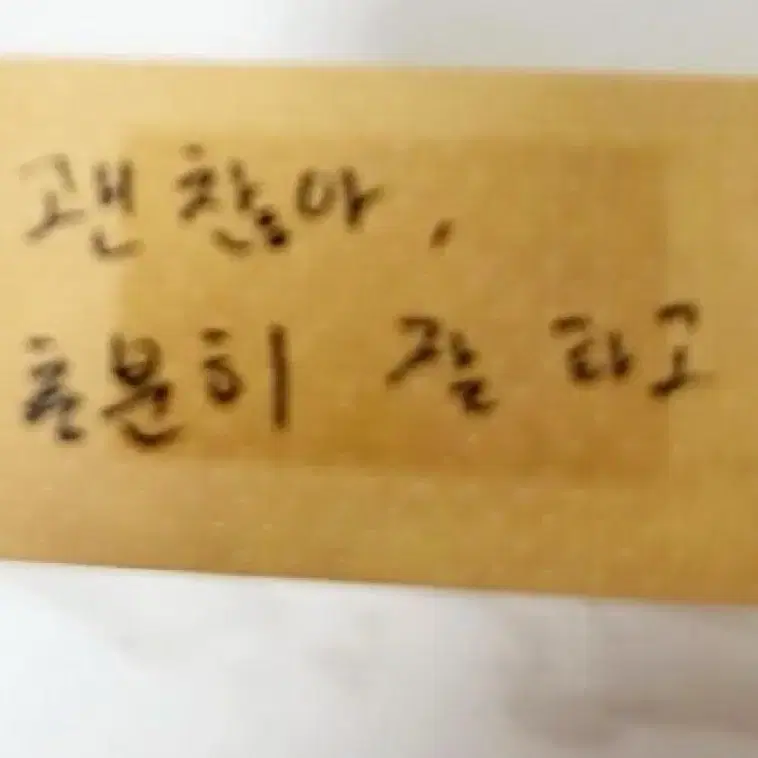 괜찮아,
충분히 잘 하고